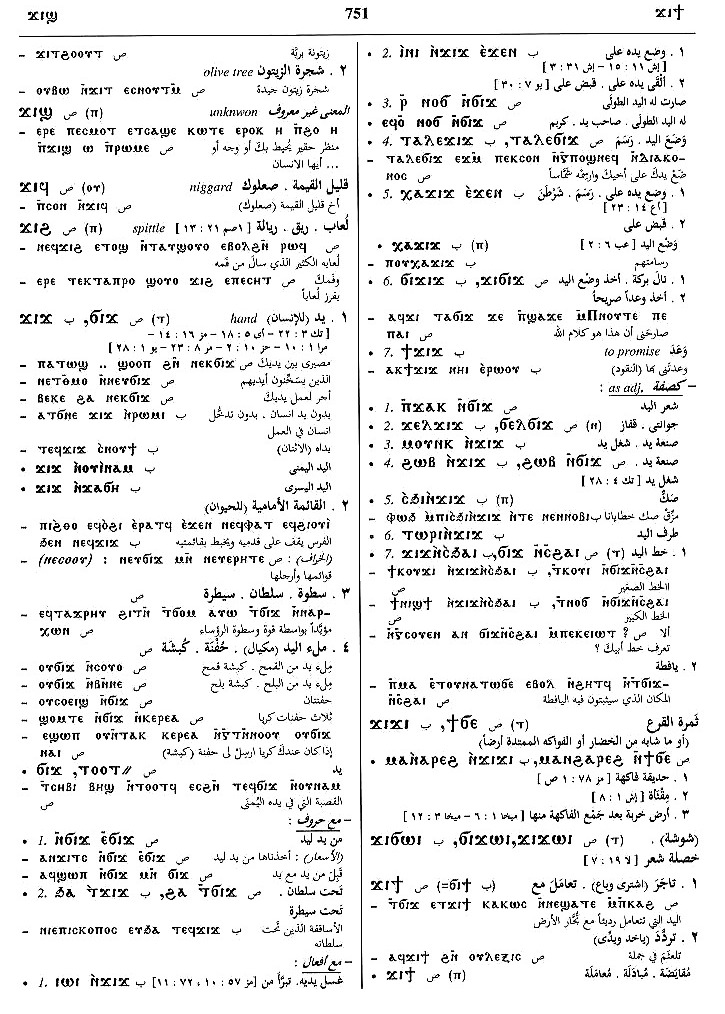 ϫⲓϣ
751
ϫⲓϯ
– ϫⲓⲧϩⲟⲟⲩⲧ ص زيتونة بريّة
٢ . شجرة الزيتون olive tree
– ⲟⲩⲃⲱ ⲛ̀ϫⲓⲧ ⲉⲥⲛⲟⲩⲧⲙ̄ ص شجرة زيتون جيدة
ϫⲓϣ (ⲡ) ص unknwon المعنى غير معروف
– ⲉⲣⲉ ⲡⲉⲥⲙⲟⲧ ⲉⲧⲥⲁϣⲉ ⲕⲱⲧⲉ ⲉⲣⲟⲕ ⲏ ⲡ̄ϩⲟ ⲏ
ⲡ̄ϫⲓϣ ⲱ ⲡ̄ⲣⲱⲙⲉ ص منظر حقير يُحيط بكَ أو وجه أو
... أيها الإنسان
ϫⲓϥ (ⲟⲩ) ص niggard قليل القيمة . صعلوك
– ⲡⲥⲟⲛ ⲛ̄ϫⲓϥ ص أخ قليل القيمة (صعلوك)
ϫⲓϩ (ⲡ) ص spittle [١صم ٢١ : ١٣] لُعاب . ريق . ريالة
– ⲛⲉϥϫⲓϩ ⲉⲧⲟϣ ⲛ̄ⲧⲁⲩϣⲟⲩⲟ ⲉⲃⲟⲗϩⲛ̄ ⲣⲱϥ ص
لُعابه الكثير الذي سالَ من فمه
– ⲉⲣⲉ ⲧⲉⲕⲧⲁⲡⲣⲟ ϣⲟⲩⲟ ϫⲓϩ ⲉⲡⲉⲥⲏⲧ ص وفمكَ
يفرز لُعاباً
ϫⲓϫ ص ,ϭⲓϫ ب (ⲧ) hand ١ . يد (للإنسان)
[تك ٣ : ٢٢ – أى ٥ : ١٨ – مز ١٦ : ١٤ –
مرا ١ : ١٠ – حز ١٠ : ٢ – مر ٨ : ٢٣ – يو ١ : ٢٨]
– ⲡⲁⲧⲱϣ .. ϣⲟⲟⲡ ϩⲛ̄ ⲛⲉⲕϭⲓϫ ص مصيري بين يديكَ
– ⲛⲉⲧⲑⲙⲟ ⲛ̄ⲛⲉⲩϭⲓϫ ص الذين يسَخّنون أيديهم
– ⲃⲉⲕⲉ ϩⲁ ⲛⲉⲕϭⲓϫ ص أجر لعمل يديكَ
– ⲁⲧϭⲛⲉ ϫⲓϫ ⲛ̀ⲣⲱⲙⲓ ب بدون يد انسان . بدون تدخُّل
انسان في العمل
– ⲧⲉϥϫⲓϫ ⲥ̀ⲛⲟⲩϯ ب يداه (الإثنان)
• ϫⲓϫ ⲛ̀ⲟⲩⲓ̀ⲛⲁⲙ ب اليد اليمنى
• ϫⲓϫ ⲛ̀ϫⲁϭⲏ ب اليد اليسرى
٢ . القائمة الأمامية (للحيوان)
– ⲡⲓϩⲑⲟ ⲉϥⲟ̀ϩⲓ ⲉ̀ⲣⲁⲧϥ ⲉ̀ϫⲉⲛ ⲛⲉϥⲫⲁⲧ ⲉϥϩⲓⲟⲩⲓ̀
ϧⲉⲛ ⲛⲉϥϫⲓϫ ب الفرس يقف على قدميه ويخبط بقائمتيه
– (ⲛⲉⲥⲟⲟⲩ) : ⲛⲉⲩϭⲓϫ ⲙⲛ̄ ⲛⲉⲩⲉⲣⲏⲧⲉ ص : (الخراف)
قوائمها وأرجلها
٣ . سطوة . سلطان . سيطرة ص
– ⲉϥⲧⲁϫⲣⲏⲩ ϩⲓⲧⲛ̄ ⲧ̄ϭⲟⲙ ⲁⲩⲱ ⲧ̄ϭⲓϫ ⲛ̄ⲛⲁⲣ-
ⲭⲱⲛ ص مؤيَّداً بواسطة قوة وسطوة الرؤساء
٤ . ملء اليد (مكيال) . حُفْنَة . كُبشَة ص
– ⲟⲩϭⲓϫ ⲛ̄ⲥⲟⲩⲟ ص ملء يد من القمح . كبشة قمح
– ⲟⲩϭⲓϫ ⲛ̄ⲃⲛ̄ⲛⲉ ص ملء يد من البلح . كبشة بلح
– ⲟⲩⲥⲟⲉⲓϣ ⲛ̄ϭⲓϫ ص حفنتان
– ϣⲟⲙⲧⲉ ⲛ̄ϭⲓϫ ⲛ̄ⲕⲉⲣⲉⲁ ص ثلاث حفنات كريا
– ⲉϣⲱⲡ ⲟⲩⲛ̄ⲧⲁⲕ ⲕⲉⲣⲉⲁ ⲛ̄ⲅⲧⲛ̄ⲛⲟⲟⲩ ⲟⲩϭⲓϫ
ⲛⲁⲓ ص إذا كان عندكَ كريا ارسِل لى حفنة (كبشة)
• ϭⲓϫ, ⲧⲟⲟⲧ// ص يد
– ⲧⲥⲏⲃⲓ ⲃⲏϣ ⲛ̄ⲧⲟⲟⲧϥ ⲉⲥϩⲛ̄ ⲧⲉϥϭⲓϫ ⲛ̄ⲟⲩⲛⲁⲙ
ص القصبة التي في يده اليُمنى
– مع حروف :
• 1. ⲛ̄ϭⲓϫ ⲉ̄ϭⲓϫ ص من يد ليد
– ⲁⲛϫⲓⲧⲥ ⲛ̄ϭⲓϫ ⲉ̄ϭⲓϫ ص (الأسعار) : أخذناها من يد ليد
– ⲁϥϣⲱⲡ ⲛ̄ϭⲓϫ ⲙⲛ̄ ϭⲓϫ ص قَبِلَ من يد مع يد
• 2. ϧⲁ ⲧ̀ϫⲓϫ ب ,ϩⲁ ⲧ̄ϭⲓϫ ص تحت سلطان .
تحت سيطرة
– ⲛⲓⲉⲡⲓⲥⲕⲟⲡⲟⲥ ⲉⲧϧⲁ ⲧⲉϥϫⲓϫ ب الأساقفة الذين تحت
سلطانه
– مع أفعال :
• 1. ⲓⲱⲓ ⲛ̀ϫⲓϫ ب [مز ٥٧ : ١٠ ، ٧٢ : ١١] غسل يديه. تبرَّأ من
• 2. ⲓ̀ⲛⲓ ⲛ̀ϫⲓϫ ⲉ̀ϫⲉⲛ ب ١ . وضع يده على
[إش ١١ : ١٥ – إش ٣١ : ٣]
٢ . ألقَى يده على . قبض على [يو ٧ : ٣٠]
• 3. ⲣ̄ ⲛⲟϭ ⲛ̄ϭⲓϫ ص صارت له اليد الطولَى
• ⲉϥⲟ̀ ⲛⲟϭ ⲛ̄ϭⲓϫ ص له اليد الطولَى . صاحب يد . كريم
• 4. ⲧⲁⲗⲉϫⲓϫ ب ,ⲧⲁⲗⲉϭⲓϫ ص وَضَعَ اليد . رَسَمَ
– ⲧⲁⲗⲉϭⲓϫ ⲉϫⲙ̄ ⲡⲉⲕⲥⲟⲛ ⲛ̄ⲅⲡⲟϣⲛⲉϥ ⲛ̄ⲇⲓⲁⲕⲟ-
ⲛⲟⲥ ص ضَعْ يدكَ على أخيكَ وارسِمْهُ شمَّاساً
• 5. ⲭⲁϫⲓϫ ⲉ̀ϫⲉⲛ ب ١ . وضع يده على . رَسَمَ . شَرْطَنَ
[أع ١٤ : ٢٣]
٢ . قبض على
• ⲭⲁϫⲓϫ ب (ⲡ) وَضْع اليد [عب ٦ : ٢]
– ⲡⲟⲩⲭⲁϫⲓϫ ب رسامتهم
• 6. ϭⲓϫⲓϫ ب ,ϫⲓϭⲓϫ ص ١ . نالَ بركة . أخذ وضع اليد
٢ . أخذ وعداً صريحاً
– ⲁϥϫⲓ ⲧⲁϭⲓϫ ϫⲉ ⲡ̄ϣⲁϫⲉ ⲙ̄ⲡⲛⲟⲩⲧⲉ ⲡⲉ
ⲡⲁⲓ ص صارحَني أن هذا هو كلام الله
• 7. ϯϫⲓϫ ب to promise وَعَدَ
– ⲁⲕϯϫⲓϫ ⲛⲏⲓ ⲉ̀ⲣⲱⲟⲩ ب وعدتني بها (النقود)
– كصفة as adj. :
• 1. ⲡ̄ϫⲁⲕ ⲛ̄ϭⲓϫ ص شعر اليد
• 2. ϫⲉⲗϫⲓϫ ب ,ϭⲉⲗϭⲓϫ ص (ⲛ) جوانتى . قفاز
• 3. ⲙⲟⲩⲛⲕ ⲛ̀ϫⲓϫ ب صنعة يد . شغل يد
• 4. ϩⲱⲃ ⲛ̀ϫⲓϫ ب ,ϩⲱⲃ ⲛ̄ϭⲓϫ ص صنعة يد .
شغل يد [تك ٤ : ٢٨]
• 5. ⲥ̀ϧⲓⲛ̀ϫⲓϫ ب (ⲡ) صَكٌ
– ⲫⲱϧ ⲙ̀ⲡⲓⲥ̀ϧⲓⲛ̀ϫⲓϫ ⲛ̀ⲧⲉ ⲛⲉⲛⲛⲟⲃⲓ ب مزّق صك خطايانا
• 6. ⲧⲱⲣⲓⲛ̀ϫⲓϫ ب طرف اليد
• 7. ϫⲓϫⲛ̀ⲥ̀ϧⲁⲓ ب ,ϭⲓϫ ⲛ̄ⲥϩⲁⲓ ص (ⲧ) ١ . خط اليد
– ϯⲕⲟⲩϫⲓ ⲛ̀ϫⲓϫⲛ̀ⲥ̀ϧⲁⲓ ب ,ⲧⲕⲟⲩⲓ ⲛ̄ϭⲓϫⲛ̄ⲥϩⲁⲓ
ص الخط الصغير
– ϯⲛⲓϣϯ ⲛ̀ϫⲓϫⲛ̀ⲥ̀ϧⲁⲓ ب ,ⲧⲛⲟϭ ⲛ̄ϭⲓϫⲛ̄ⲥϩⲁⲓ
ص الخط الكبير
– ⲛ̄ⲅⲥⲟⲩⲉⲛ ⲁⲛ ϭⲓϫⲛ̄ⲥϩⲁⲓ ⲙ̄ⲡⲉⲕⲉⲓⲱⲧ ? ص ألا
تعرف خط أبيكَ ؟
٢ . يافطة
– ⲡ̄ⲙⲁ ⲉ̄ⲧⲟⲩⲛⲁⲧⲱϭⲉ ⲉⲃⲟⲗ ⲛ̄ϩⲏⲧϥ ⲛ̄ⲧϭⲓϫ-
ⲛ̄ⲥϩⲁⲓ ص المكان الذي سيثبتون فيه اليافطة
ϫⲓϫⲓ ب ,ϯϭⲉ ص (ⲧ) ثمرة القرع
(أو ما شابه من الخضار أو الفواكه الممتدة أرضاً)
• ⲙⲁⲛⲁⲣⲉϩ ⲛ̀ϫⲓϫⲓ ب ,ⲙⲁⲛϩⲁⲣⲉϩ ⲛ̄ϯϭⲉ ص
١ . حديقة فاكهة [مز ٧٨ : ١ ص]
٢ . مِقْثَأة [إش ١ : ٨]
٣ . أرض خربة بعد جَمْع الفاكهة منها [ميخا ١ : ٦ – ميخا ٣ : ١٢]
ϫⲓϭⲱⲓ ب ,ϭⲓϫⲱⲓ,ϫⲓϫⲱⲓ ص (ⲧ) (شوشة) .
خصلة شعر [لا ١٩ : ٧]
ϫⲓϯ ص (ب ϭⲓ=ϯ) ١ . تاجَرَ (اشترى وباع) . تعامَلَ مع
– ⲧ̄ϭⲓϫ ⲉⲧϫⲓϯ ⲕⲁⲕⲱⲥ ⲛ̄ⲛⲉϣⲁⲧⲉ ⲙ̄ⲡ̄ⲕⲁϩ ص
اليد التي تتعامل رديئاً مع تُجَّار الأرض
٢ . تردَّدَ (ياخد ويدَّى)
– ⲁϥϫⲓϯ ϩⲛ̄ ⲟⲩⲗⲉⲝⲓⲥ ص تلعثم في جملة
• ϫⲓϯ ص (ⲡ) مُقايَضَة . مُبادَلَة . مُعامَلَة